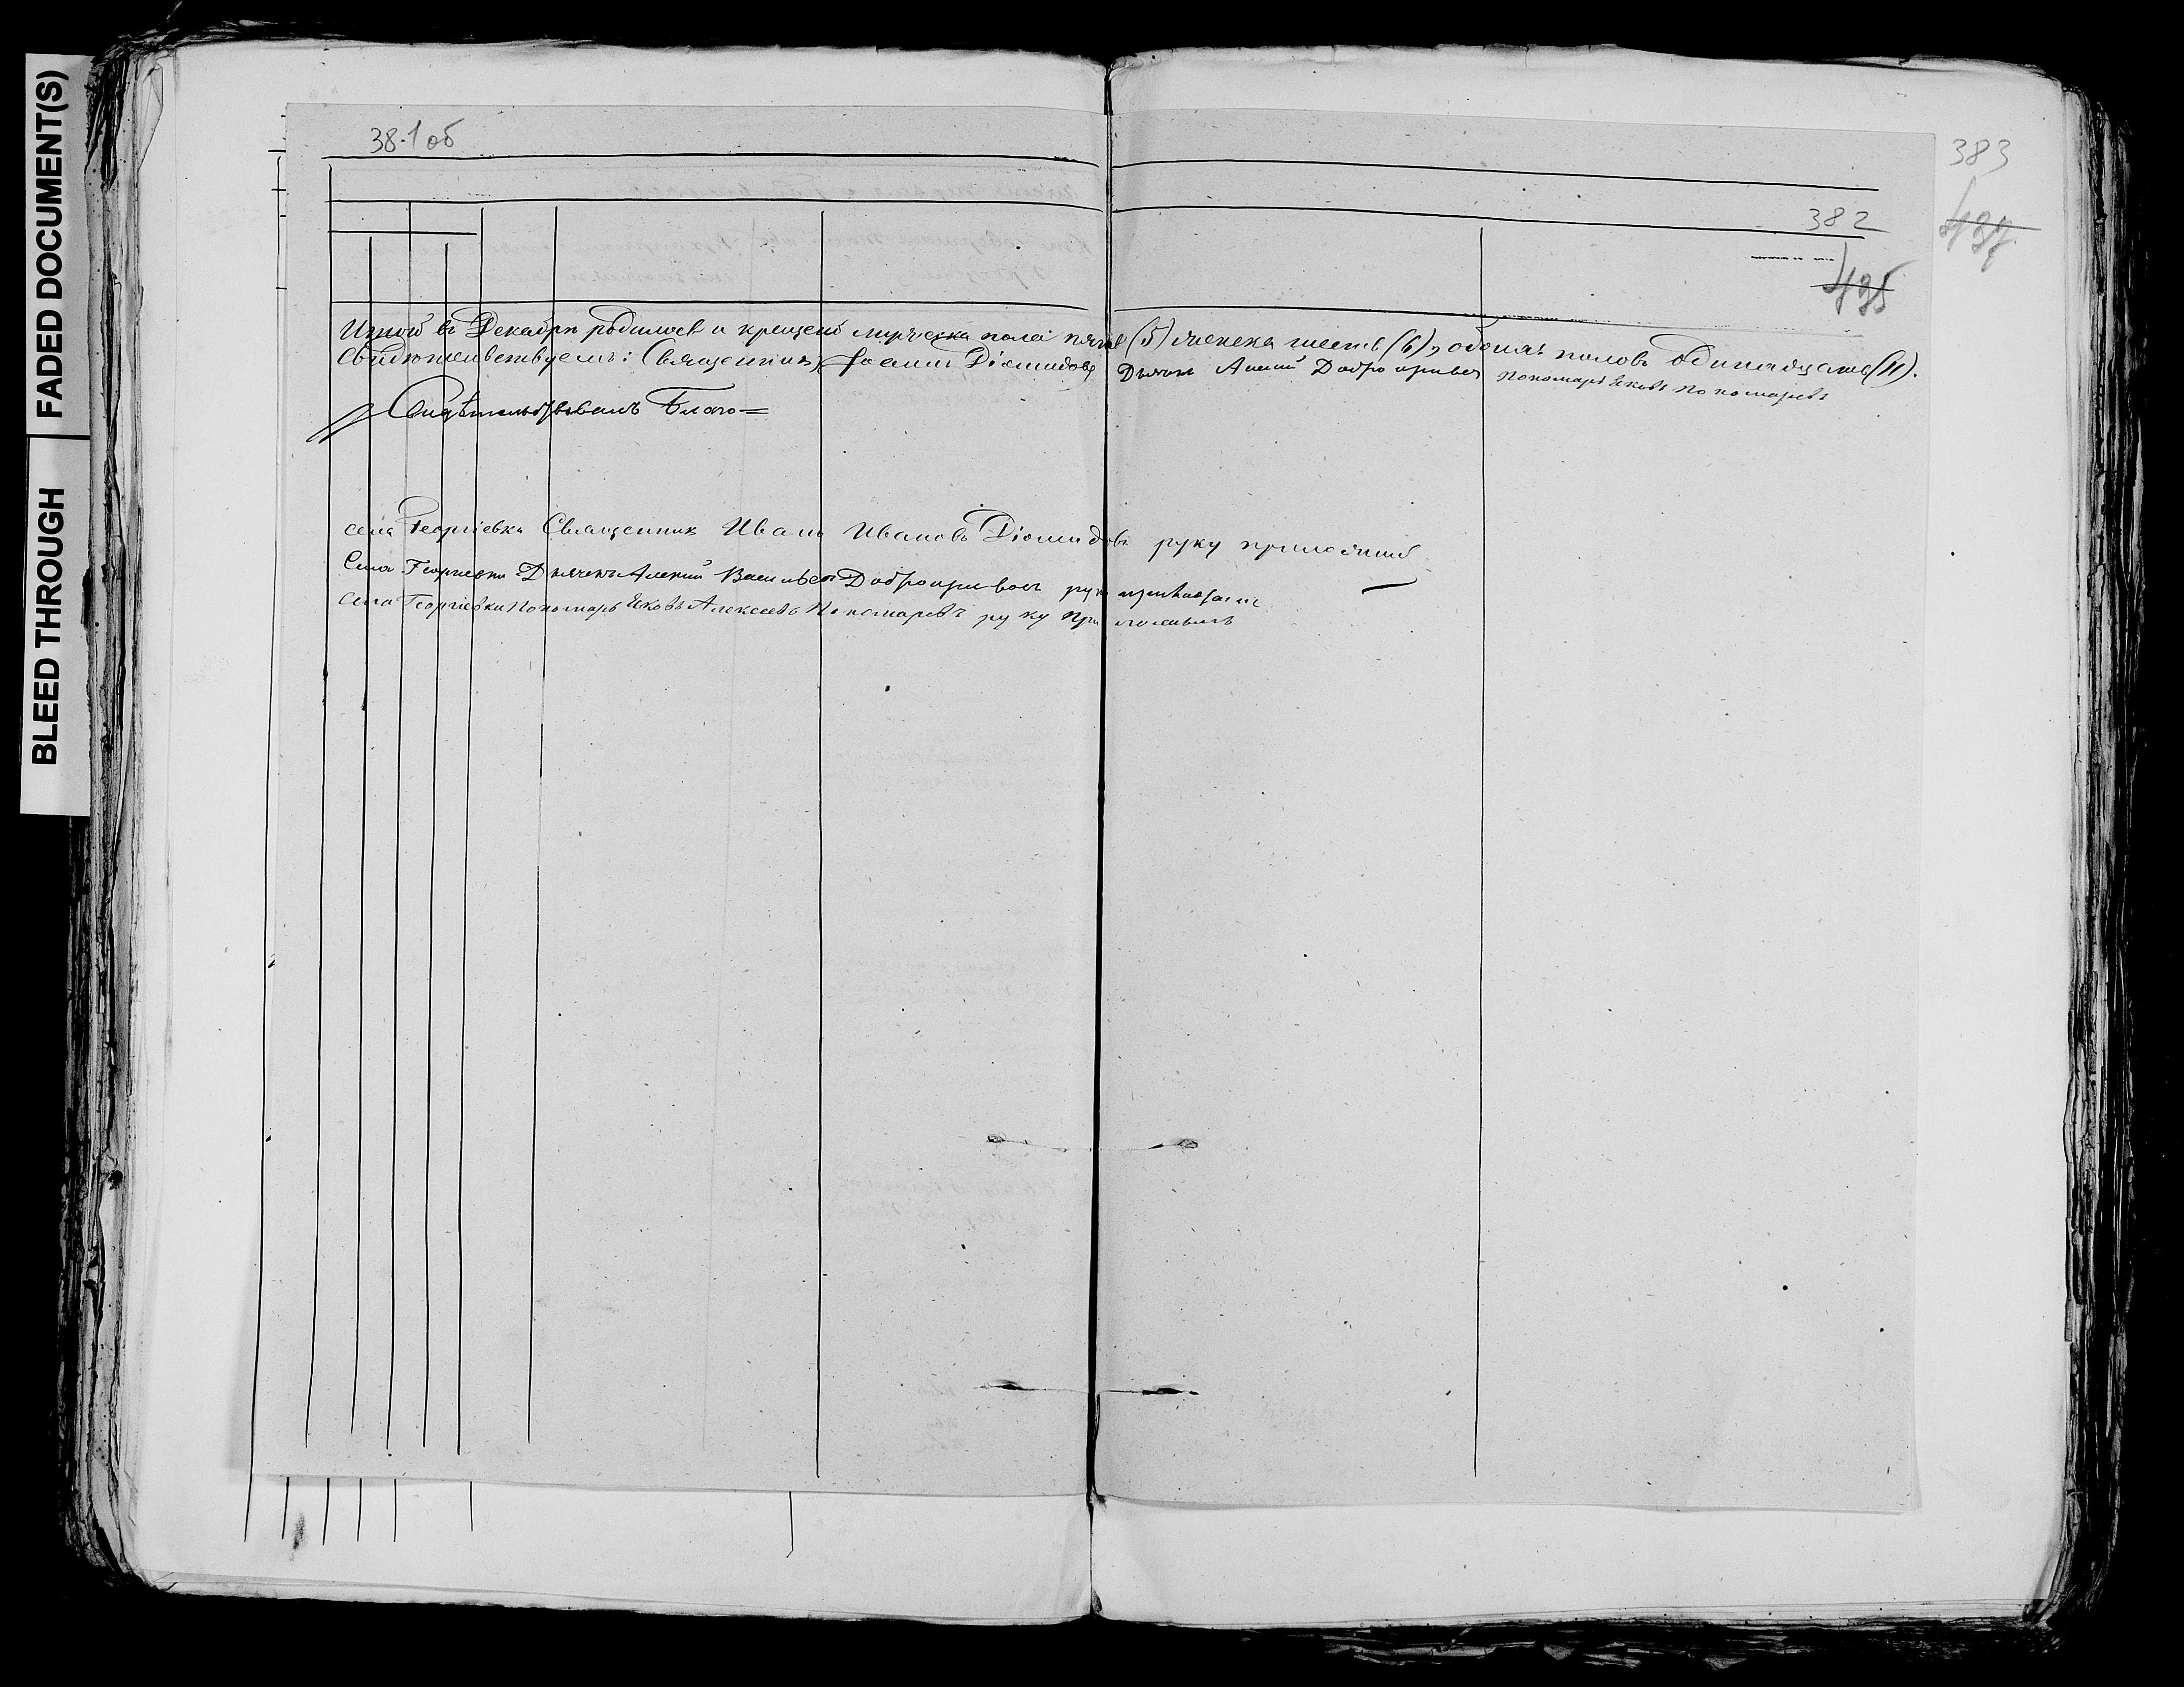 FADED DOCUMENT(S)
BLEED THROUGH
38-1 об
383
382
437
435
Итого въ Декабрѣ родилось и крещено мужеска пола пять (5) женска шесть (6), обоихъ половъ одинадцать (11).
Свидѣтельствуемъ: Священникъ Іоаннъ Діомидовъ Дьячекъ Алексій Добронравовъ Пономарь Яковъ Пономаревъ
Свидѣтельствовалъ Благо=
села Георгіевки Священник Иванъ Ивановъ Діомидовъ руку приложилъ
Села Георгіевки Дьячекъ Алексій Васильевъ Добронравовъ руку приложилъ
села Георгіевки Пономарь Яковъ Алексеевъ Пономаревъ руку приложилъ